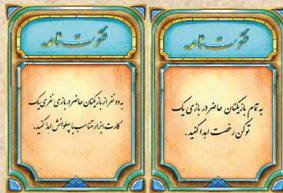 فتوت نامه
به دو نفر از بازیکنان حاضر در بازی نفری یک
کارت ابزار متناسب با پهلوانش اهدا کنید.
فتوت نامه
به تمام بازیکنان حاضر در بازی یک
توکن رخصت اهدا کنید.